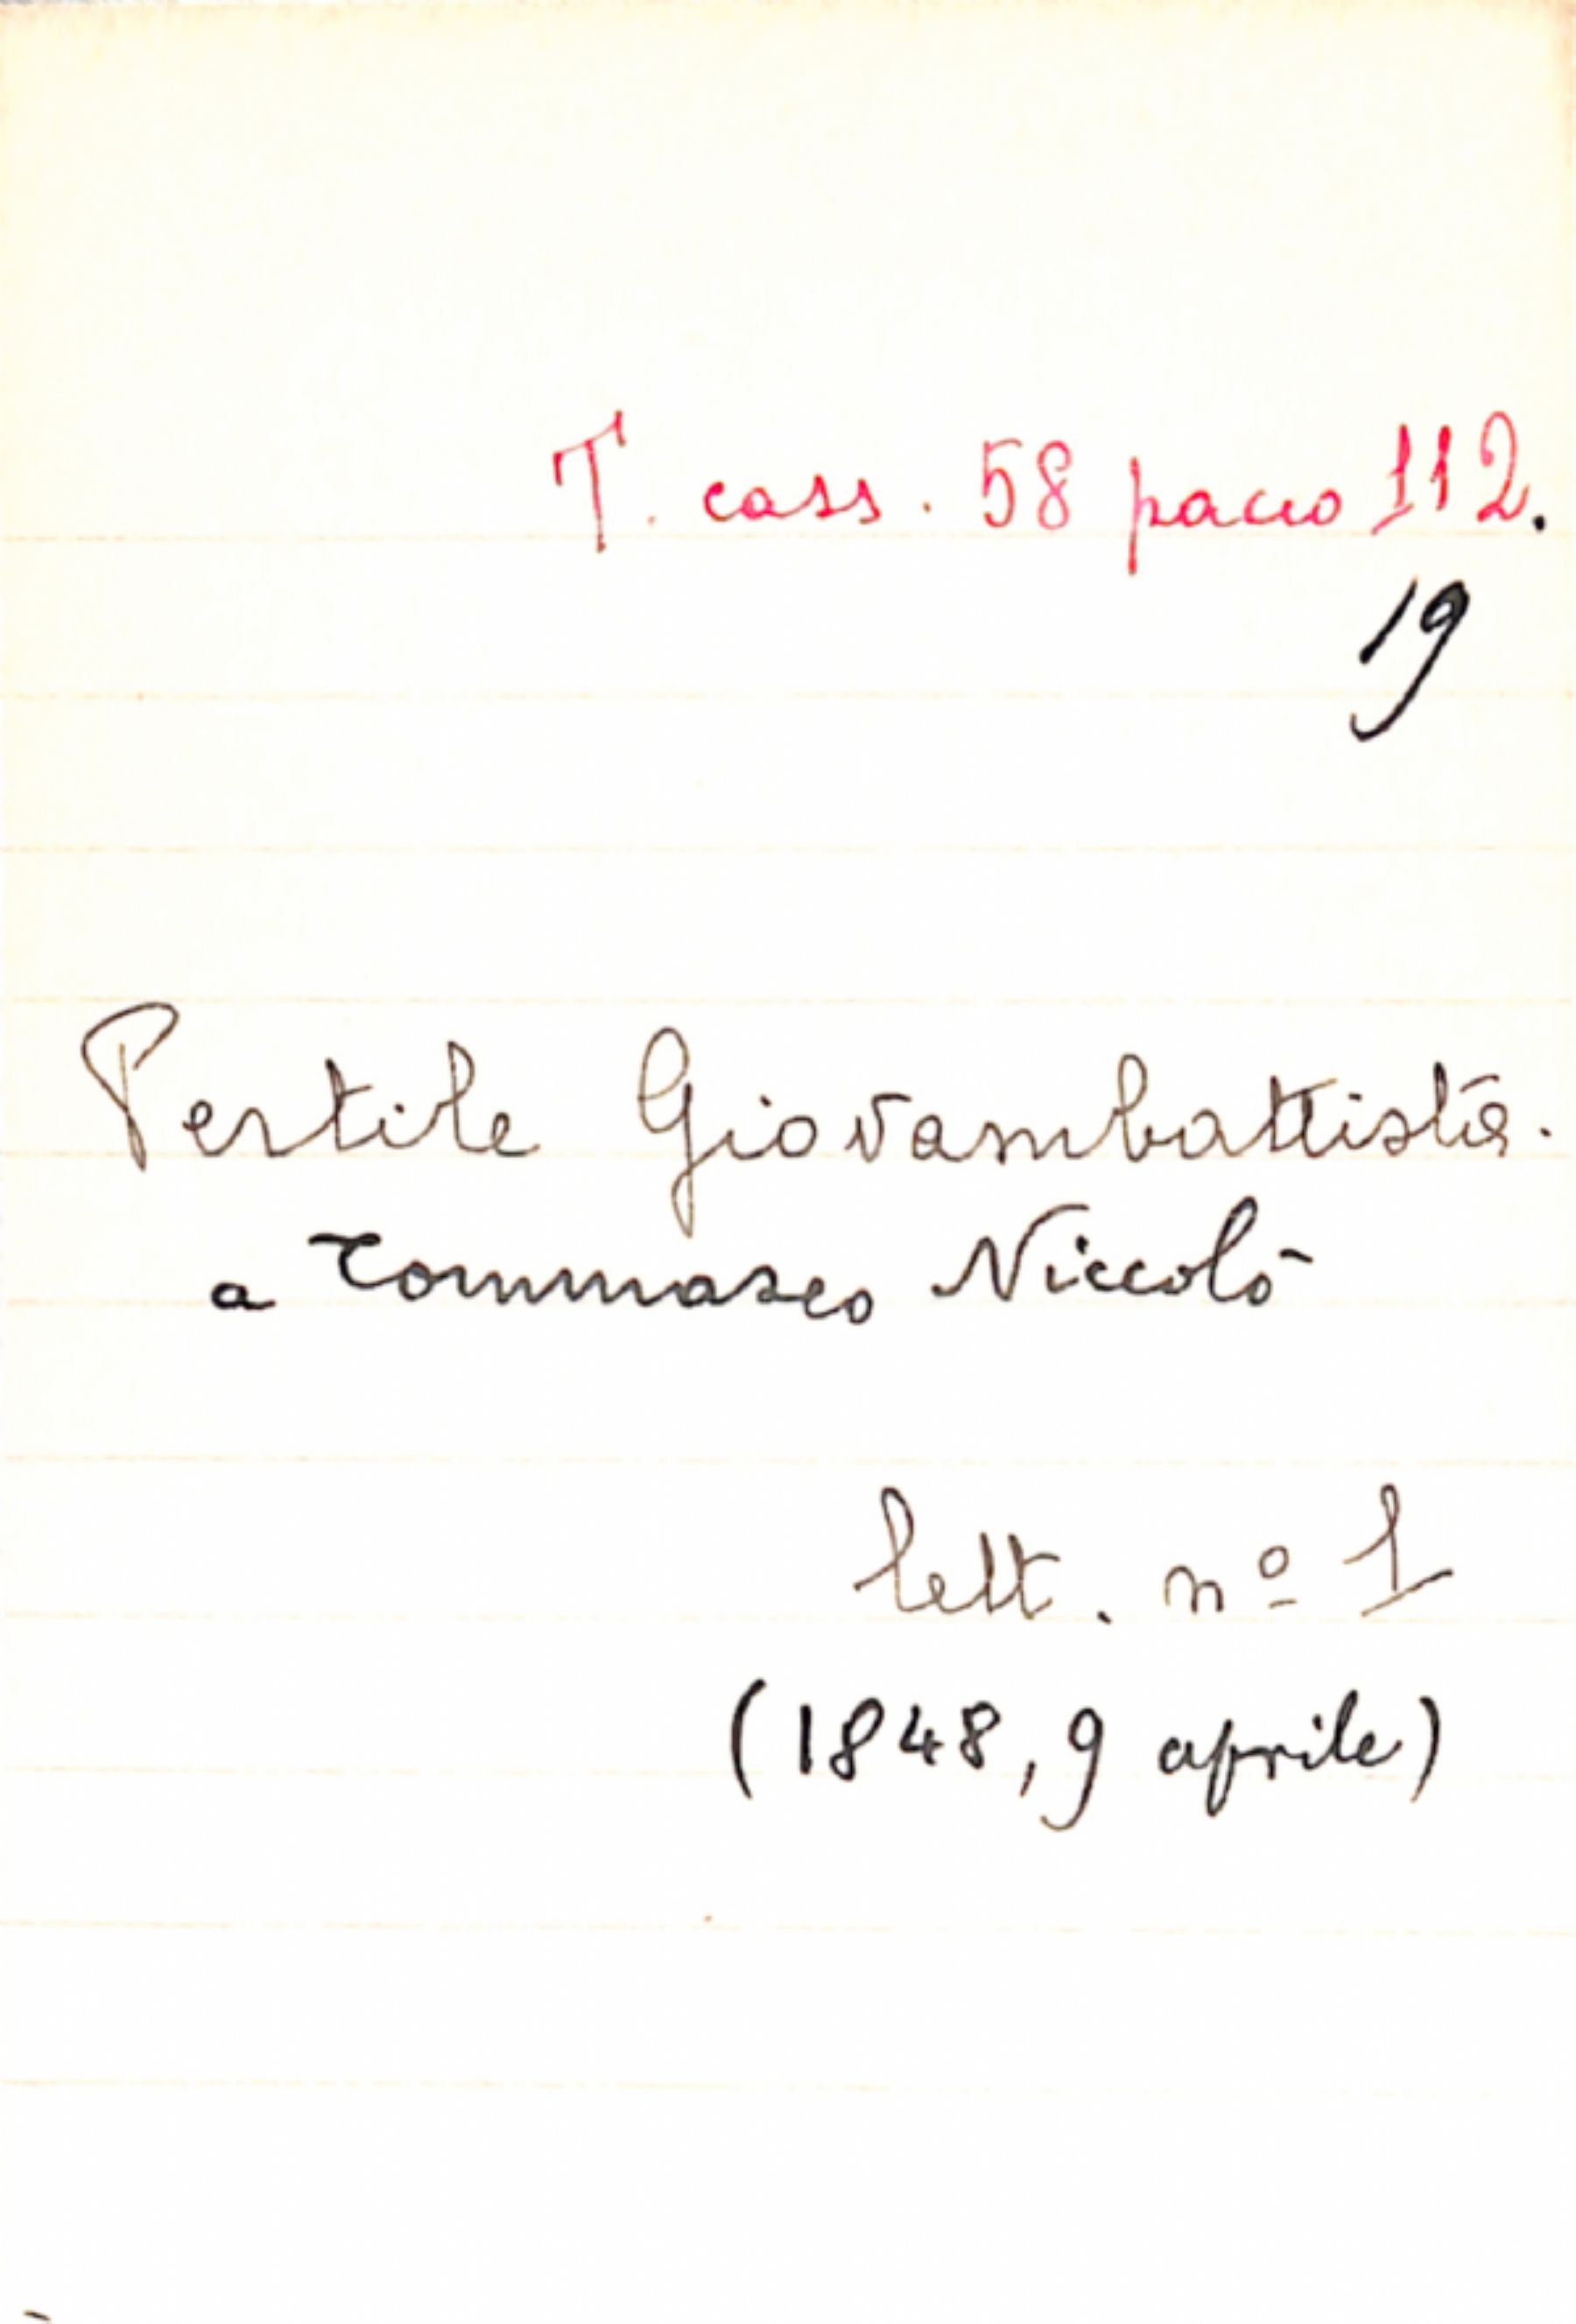 T. cass. 58 pacco 112.
19
Pertile Giovambattista.
a Tommaseo Niccolò
lett. nº 1
(1848, 9 aprile)